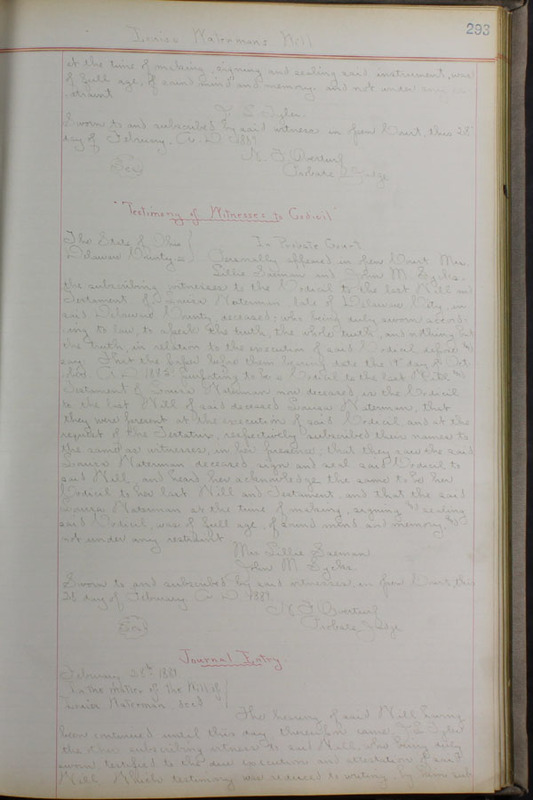 293
Louisa Watermans Will
at the time of making, signing and sealing said instrument, was
of full age, of sound mind and memory and not under any re-
straint
Sworn to and subscribed by said witness in open Court, this 28"
day of February A. D. 1889
Probate Judge
Seal
"Testimony of Witnesses to Codicil"
The State of Ohio In Probate Court
Delaware County ss Personally appeared in open Court Mrs.
Lillie and John M.
the subscribing witnesses to the Codicil to the last Will and
Testament of Louisa Waterman late of Delaware City, in
said Delaware County, deceased; who being duly sworn accord-
ing to law, to speak the truth, the whole truth, and nothing but
the truth, in relation to the execution of said Codicil depose and
say: That the paper before them bearing date the day of
A. D. purporting to be a Codicil to the last Will and
Testament of Louisa Waterman now deceased is the Codicil
to the last Will of said deceased Louisa Waterman, that
they were present at the execution of said Codicil and at the
request of the Testatrix, respectively subscribed their names to
the same as witnesses, in her presence; that they saw the said
Louisa Waterman deceased sign and seal said Codicil to
said Will, and heard her acknowledge the same to be her
Codicil to her last Will and Testament, and that the said
Louisa Waterman at the time of making, signing and sealing
said Codicil, was of full age, of sound mind and memory, and
not under any restraint
Mrs Lillie
John M
Sworn to and subscribed by said witnesses in open Court, this
28 day of February A. D. 1889.
Probate Judge
Seal
Journal Entry.
February 28" 1889
In the Matter of the Will of
Louisa Waterman decd
The hearing of said Will having
been continued until this day thereupon came
the other subscribing witness to said Will, who being duly
sworn testified to the due execution and attestation of said
Will. Which testimony was reduced to writing, by him sub